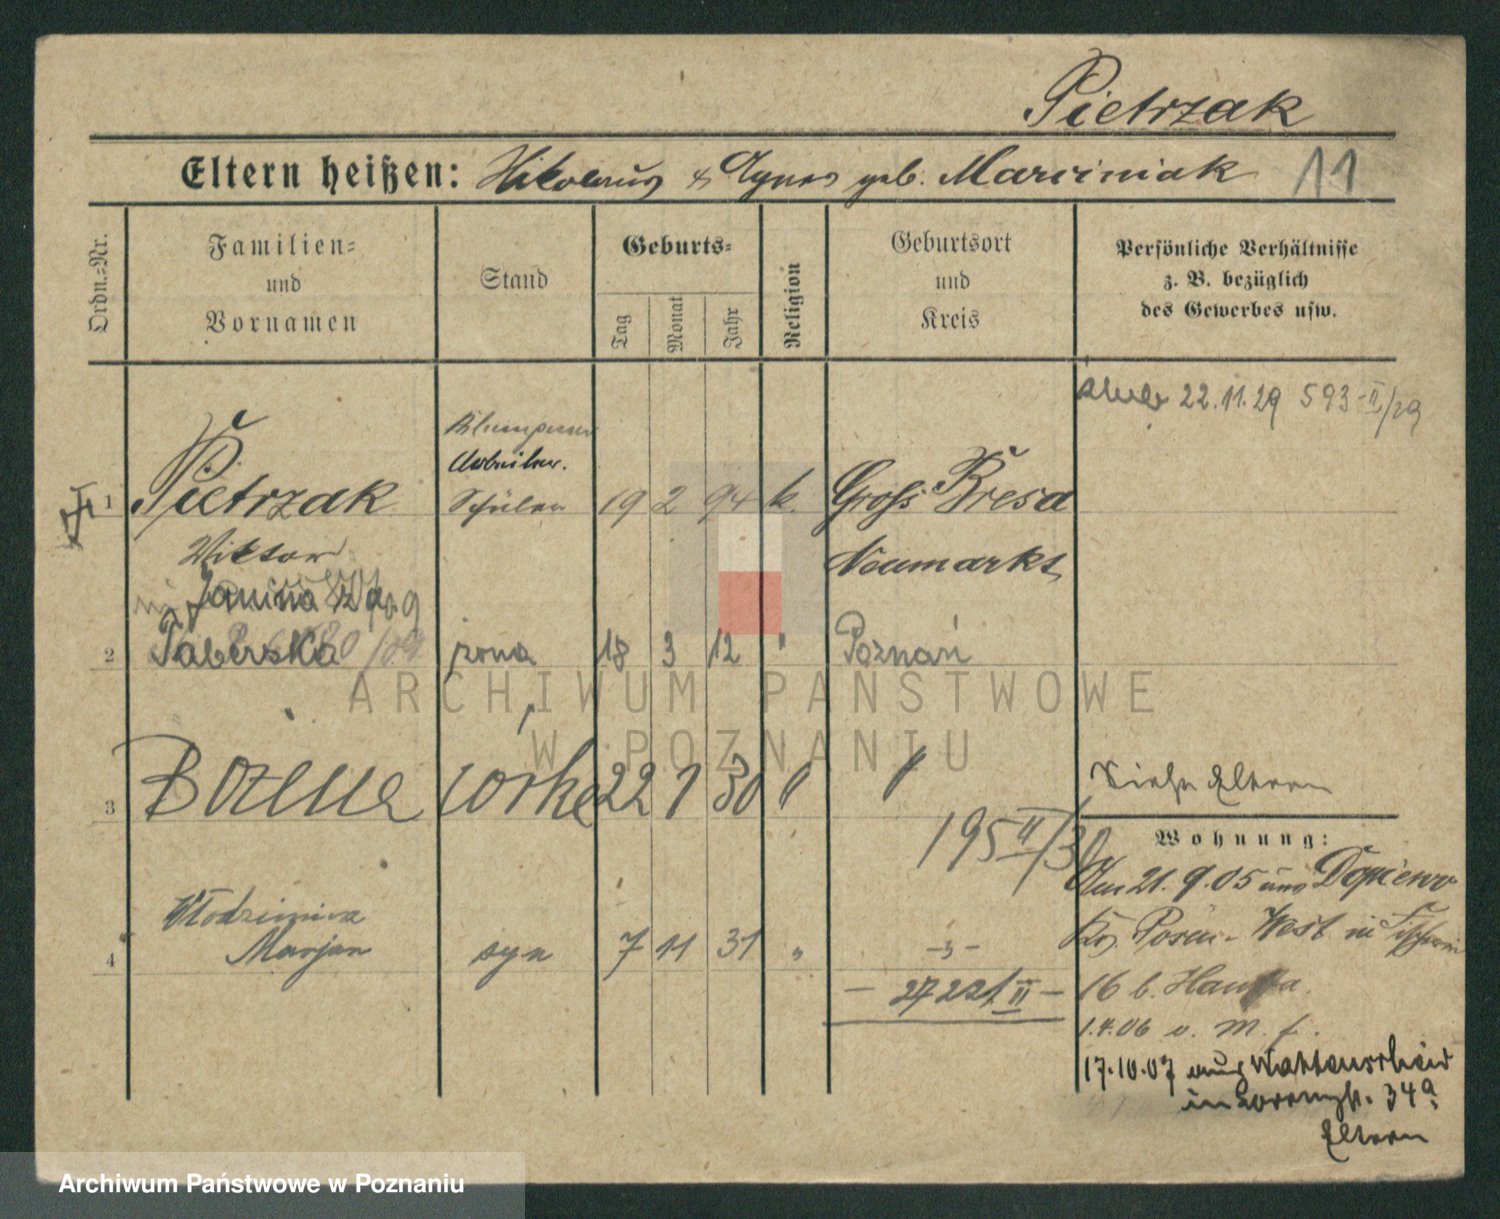 Pietrzak
Eltern heißen: Nikolaus & Agnes geb. Marciniak 11
Ordn.-Nr.
Familien-
und
Vornamen
Stand
Geburts-
Tag
Monat
Jahr
Religion
Geburtsort
und
Kreis
Persönliche Verhältnisse
z. B. bezüglich
des Gewerbes usw.
22.11.29 593-II/29
Arbeiter.
1 Pietrzak Schüler 19 2 94 k. Gross Bresa
Viktor Neumarkt
Janina
2 Taberska żona 18 3 12 " Poznań
3 Bożena córka 22 1 30 " "
Siehe Eltern
195 II/30
Wohnung:
Am 21.9.05 aus Dopiewo
Krs. Posen-West in
Marjan
4 syn 7 11 31 "
16 b.
- 27221 II -
1.4.06 v. M. f.
17.10.07 aus Wattenscheid
in 34a.
Eltern
ARCHIWUM PAŃSTWOWE
W POZNANIU
Archiwum Państwowe w Poznaniu